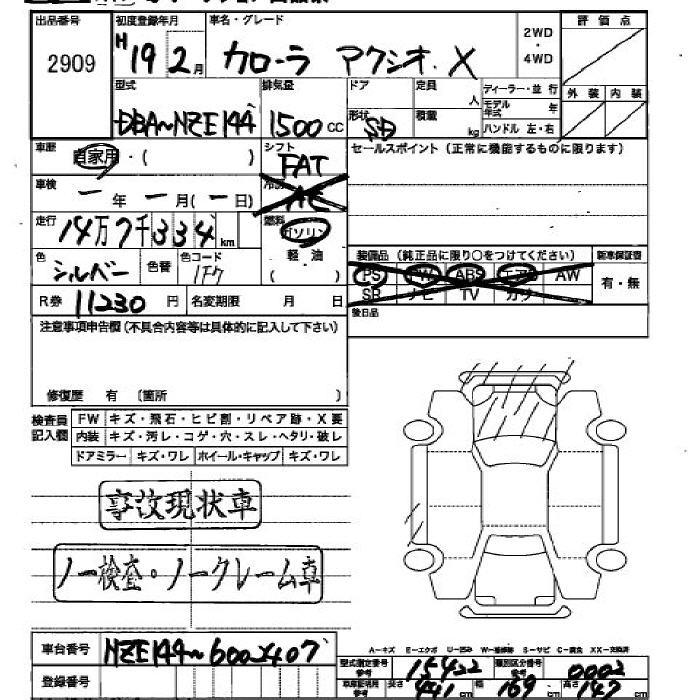 出品番号 初度登録年月 車名・グレード 評価点
2909 H19 2月 カローラ アクシオ X 2WD・4WD
型式 排気量 ドア 定員 人 ディーラー・並行 外装 内装
DBA~NZE144 1500cc 形状 SD 積載 kg モデル年式 年
ハンドル 左・右
車歴 自家用・( ) シフト FAT セールスポイント(正常に機能するものに限ります)
車検 ー年ー月(ー日) 冷房 AC
走行 14万7千334km 燃料 ガソリン
軽油
( )
色 シルバー 色替 色コード 1F7
装備品(純正品に限り○をつけてください) 新車保証書
PS PW ABS エアB AW 有・無
SR ナビ TV カワ
R券 11230円 名変期限 月 日
後日品
注意事項申告欄(不具合内容等は具体的に記入して下さい)
修復歴 有 〔箇所 〕
検査員記入欄 FW キズ・飛石・ヒビ割・リペア跡・X要
内装 キズ・汚レ・コゲ・穴・スレ・ヘタリ・破レ
ドアミラー キズ・ワレ ホイール・キャップ キズ・ワレ
事故現状車
ノー検査・ノークレーム車
車台番号 NZE144~6002407
登録番号
A−キズ E−エクボ U−凹み W−補修跡 S−サビ C−腐食 XX−交換済
型式指定番号 参考 15422 類別区分番号 参考 0002
車庫証明用 参考 長さ 441cm 幅 169cm 高さ 147cm